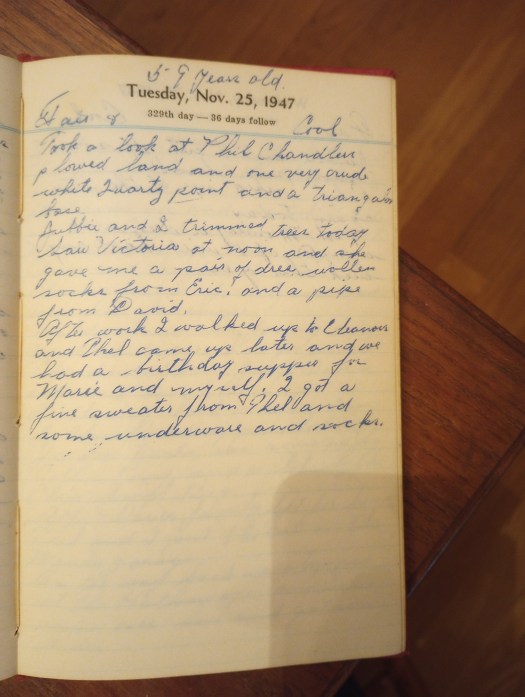 59 Years old.
Tuesday, Nov. 25, 1947
329th day — 36 days follow
Fair & Cool
Took a look at Phil Chandlers
plowed land and one very crude
white quartz point and a triangular
base
and I trimmed trees today
Saw Victoria at noon and she
gave me a pair of dress wollen
socks from Eric, and a pipe
from David.
After work I walked up to Eleanors
and Phil came up later and we
had a birthday supper for
Marie and myself. I got a
fine sweater from Phil and
some underware and socks.